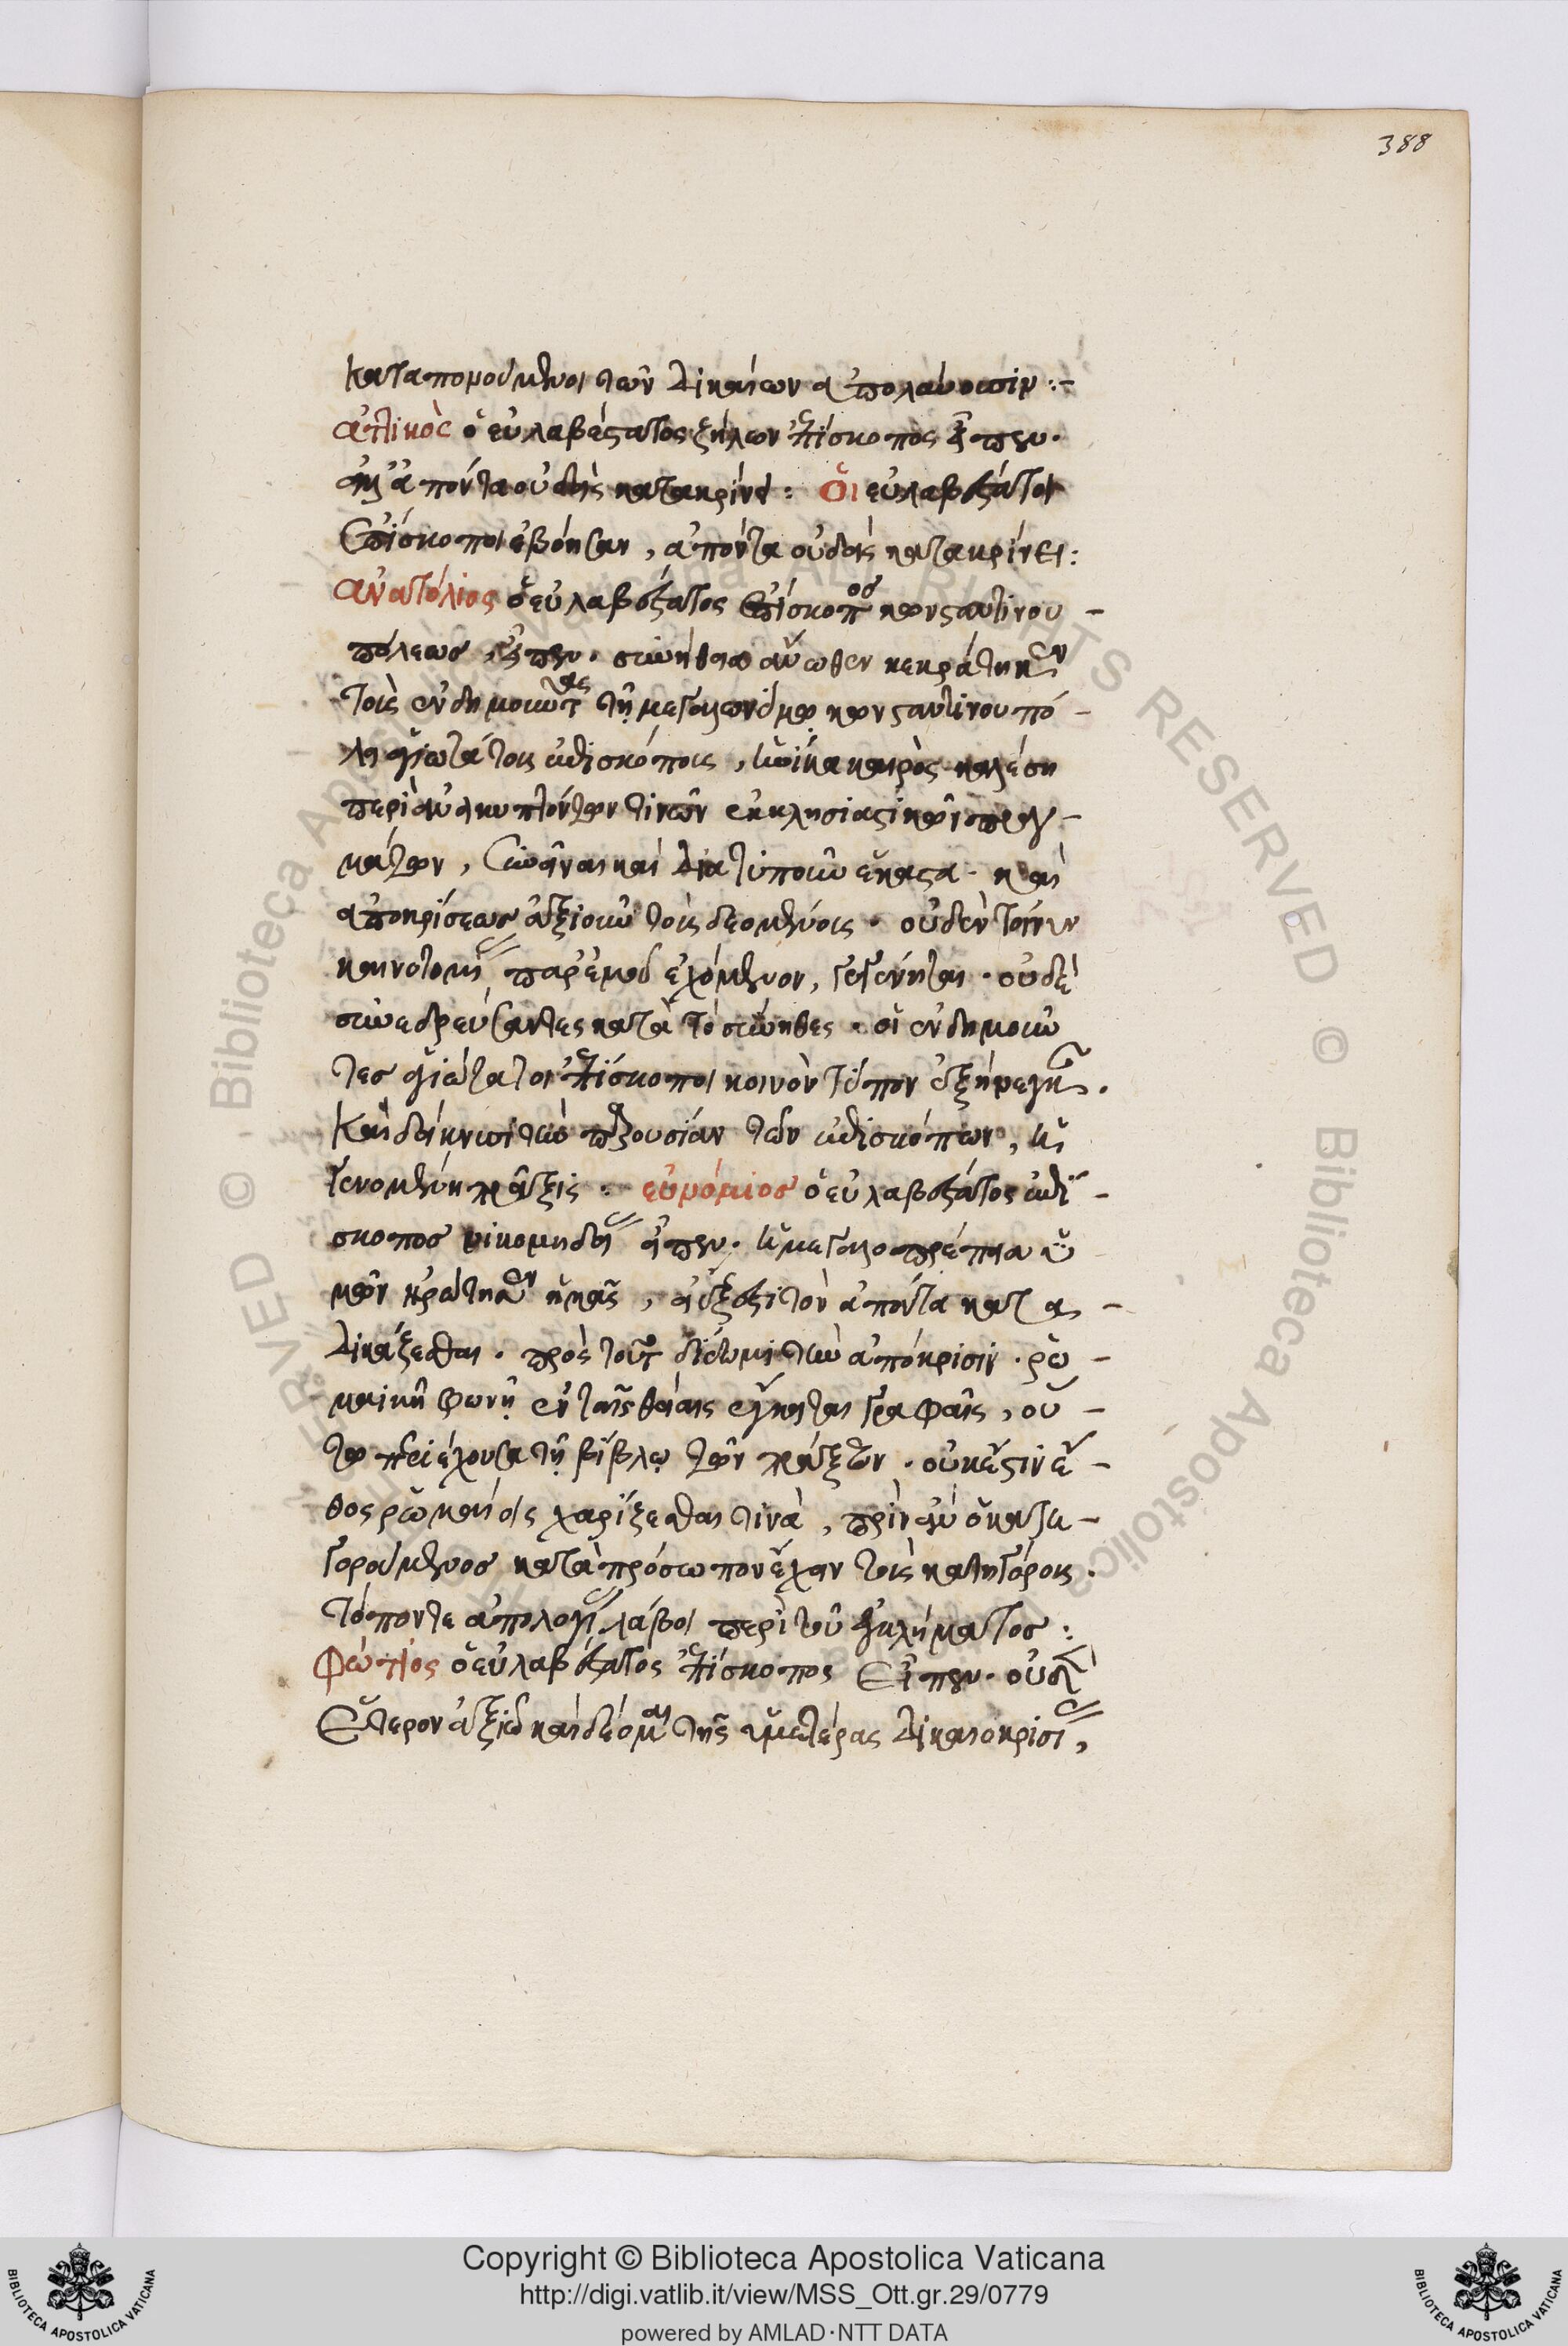 388
καταπονούμενοι τῶν δικαίων ἀπολαύουσιν :-
ἀττικὸς ὁ εὐλαβέστατος ζήλων ἐπίσκοπος εἶπεν·
ἀπόντα οὐδεὶς κατακρίνει : Οἱ εὐλαβέστατοι
ἐπίσκοποι ἐβόησαν, ἀπόντα οὐδεὶς κατακρίνει :
ἀνατόλιος ὁ εὐλαβέστατος ἐπίσκοπος κωνσταντινου -
πόλεως, εἶπεν· συνήθεια ἄνωθεν κεκράτηκεν
τοὺς ἐνδημοῦντας τῇ μεγαλωνύμῳ κωνσταντινουπό -
λει ἁγιωτάτους ἐπισκόπους, ἡνίκα καιρὸς καλέσῃ
περὶ ἀνακυπτόντων τινῶν ἐκκλησιαστικῶν πραγ -
μάτων, συνεῖναι καὶ διατυποῦν ἕκαστα· καὶ
ἀποκρίσεως ἀξιοῦν τοὺς δεομένους· οὐδὲν τοίνυν
καινοτομίας παρ' ἐμοῦ ἐχόμενον, γεγένηται· οὐδὲ
συνεδρεύσαντες κατὰ τὸ σύνηθες· οἱ ἐνδημοῦν
τες ἁγιώτατοι ἐπίσκοποι κοινὸν τύπον ἐξήνεγκαν.
Καὶ δείκνυσι τὴν παρουσίαν τῶν ἐπισκόπων, ἡ
γενομένη πρᾶξις : εὐνόμιος ὁ εὐλαβέστατος ἐπί -
σκοπος νικομηδείας εἶπεν· ἡ μεγαλοπρέπεια ὑ
μῶν ἠρώτησεν ἡμᾶς, εἰ ἔξεστι τὸν ἀπόντα κατα -
δικάζεσθαι· πρὸς τοῦτο δίδωμι τὴν ἀπόκρισιν· ῥω -
μαϊκὴ φωνὴ ἐν ταῖς θείαις ἔγκειται γραφαῖς, οὕ -
τω περιέχουσα τῇ βίβλῳ τῶν πράξεων· οὐκ ἔστιν ἔ -
θος ῥωμαίοις χαρίζεσθαι τινὰ, πρὶν ἂν ὁ κατη -
γορούμενος κατὰ πρόσωπον ἔχειν τοὺς κατηγόρους·
τόπον τε ἀπολογίας λάβοι περὶ τοῦ ἐγκλήματος :
Φώτιος ὁ εὐλαβέστατος ἐπίσκοπος εἶπεν· οὐδὲν
ἕτερον ἀξιῶ καὶ δέομαι τῆς ὑμετέρας δικαιοκρισίας,
Copyright © Biblioteca Apostolica Vaticana
http://digi.vatlib.it/view/MSS_Ott.gr.29/0779
powered by AMLAD·NTT DATA
BIBLIOTECA APOSTOLICA VATICANA
BIBLIOTECA APOSTOLICA VATICANA
© Biblioteca Apostolica Vaticana ALL RIGHTS RESERVED © Biblioteca Apostolica